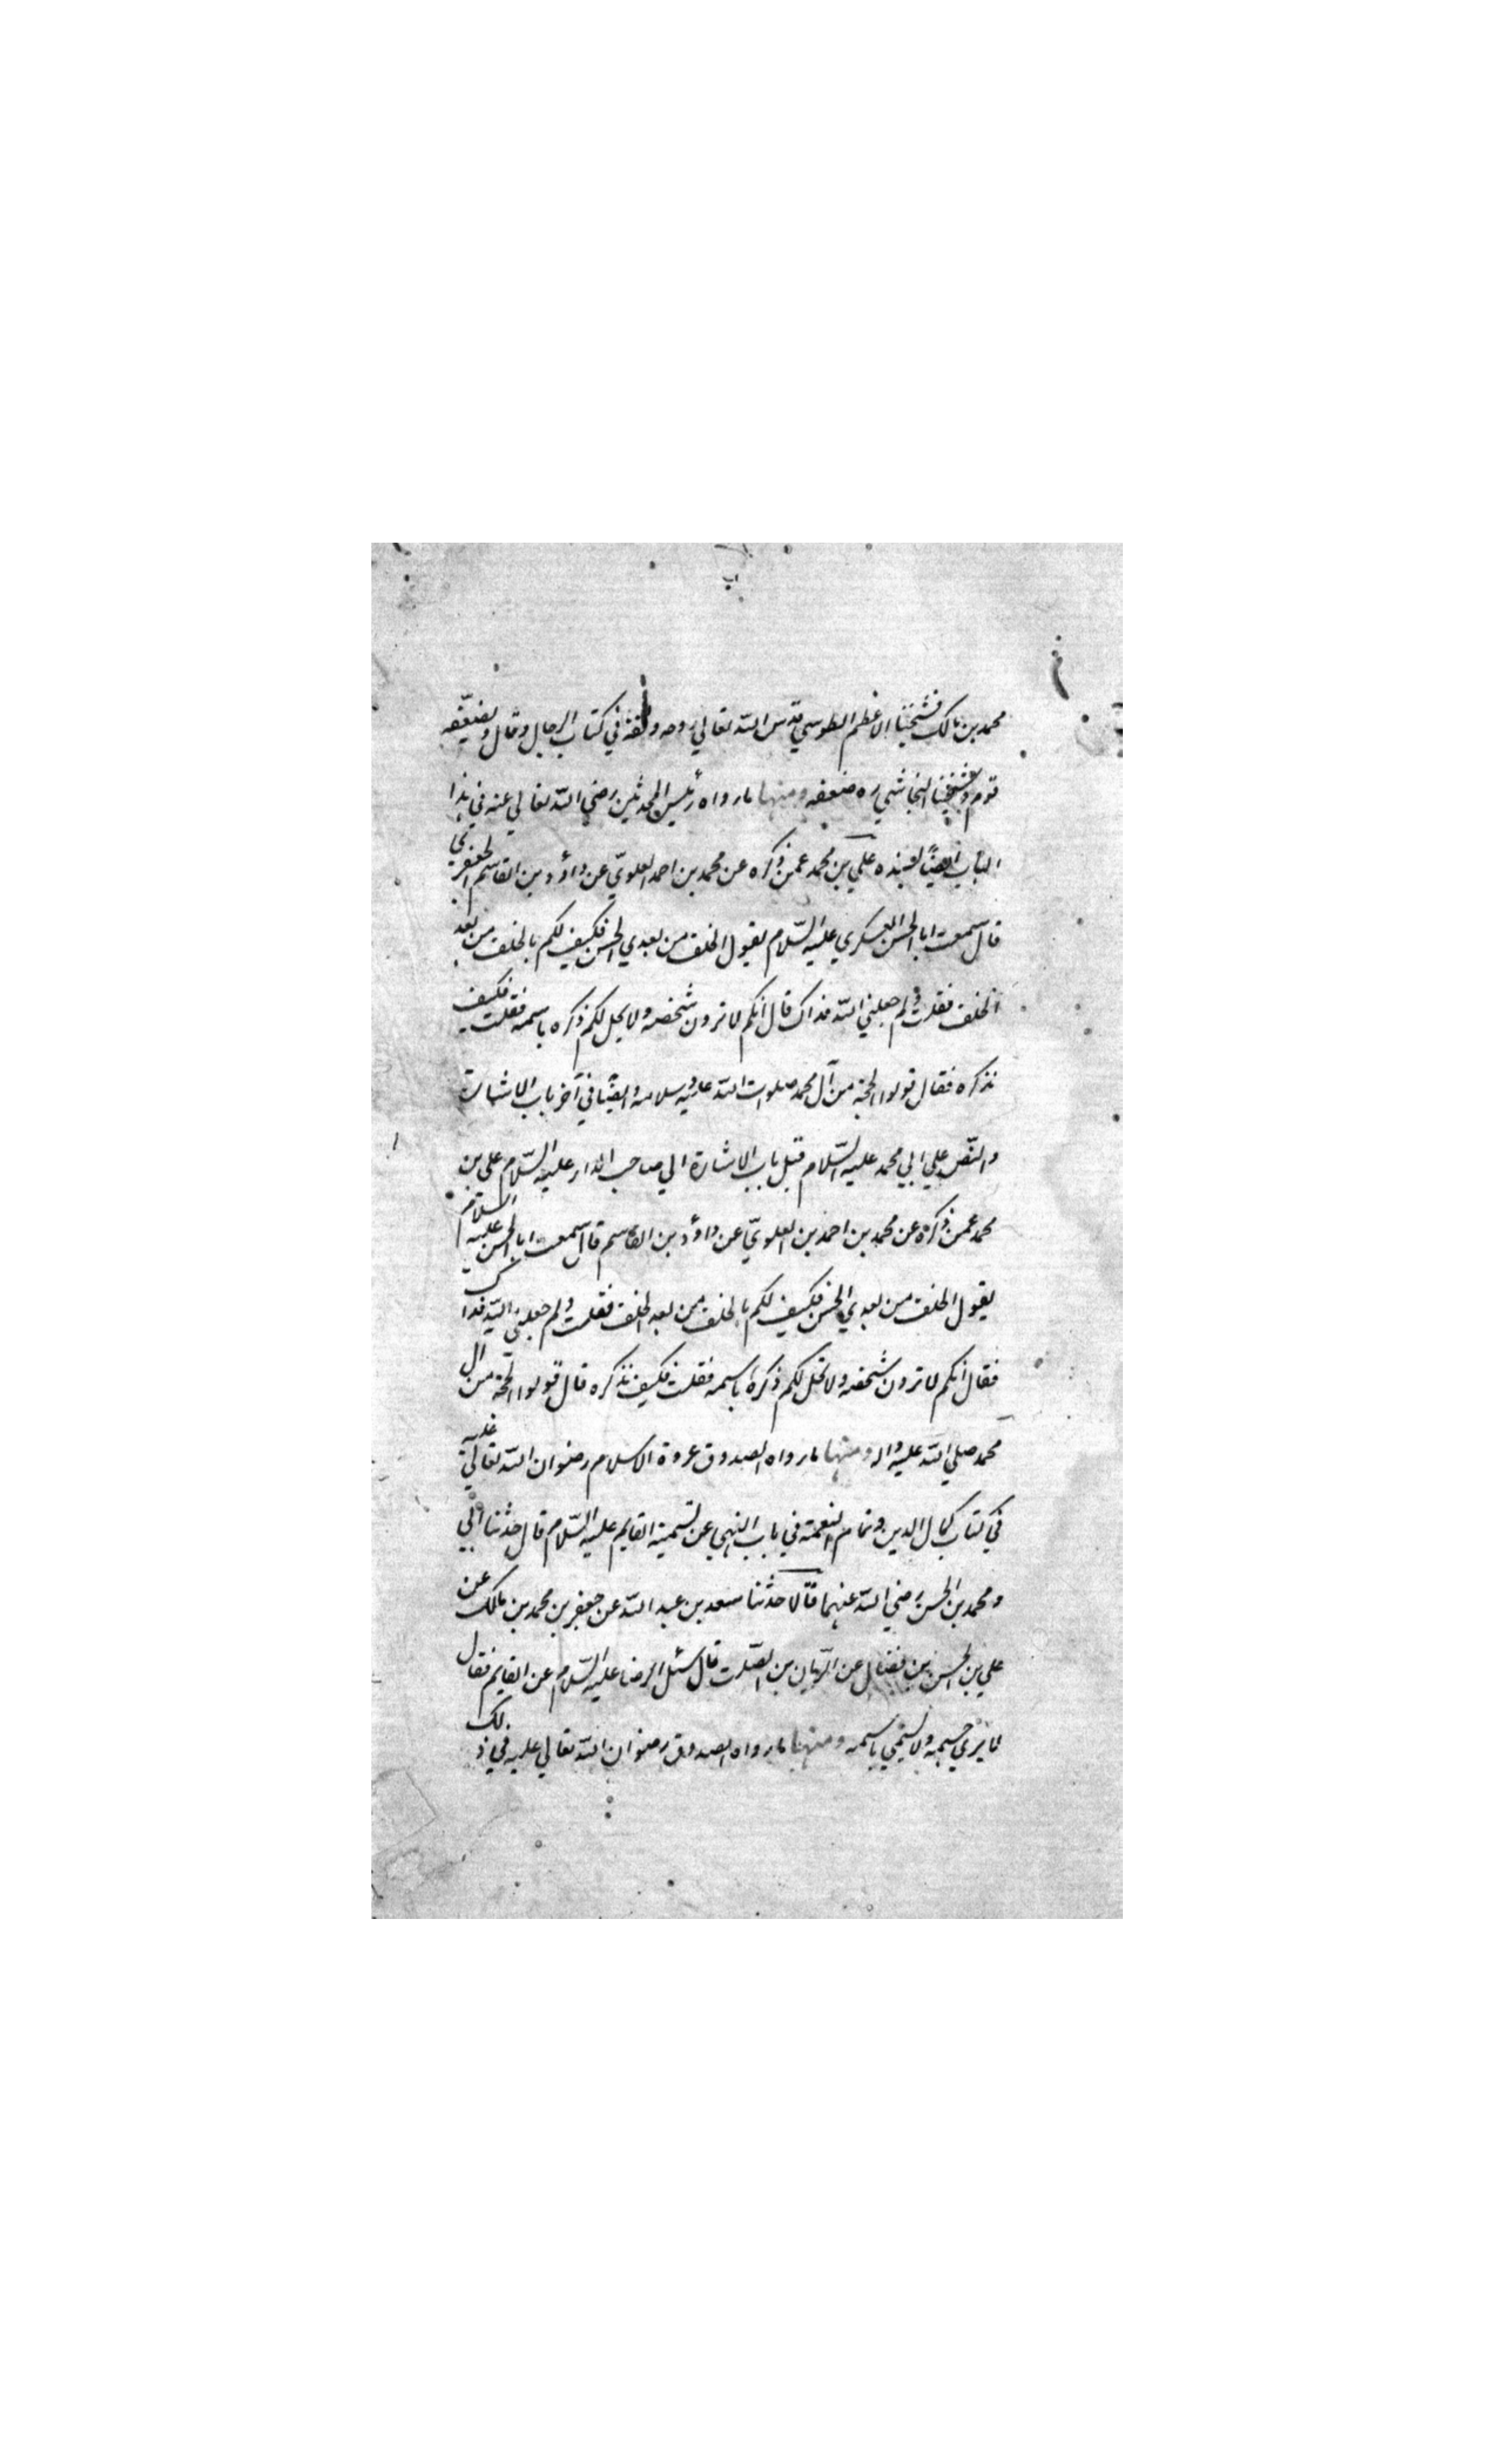 محمد بن مالك فشيخنا الاعظم الطوسي قدس الله تعالي روحه وثقه في كتاب الرجال وقال ويضعّفه
قوم وشيخنا النجاشي ره ضعفه ومنها ما رواه رئيس المحدثين رضي الله تعالي عنه في هذا
الباب ايضًا بسنده علي بن محمد عمن ذكره عن محمد بن احمد العلويّ عن داؤد بن القاسم الجعفري
قال سمعت ابا الحسن العسكري عليه السّلام يقول الخلف من بعدي الحسن فكيف لكم بالخلف من بعد
الخلف فقلت ولم جعلني الله فداك قال انكم لا ترون شخصه ولا يحل لكم ذكره باسمه فقلت فكيف
نذكره فقال قولوا الحجة من آل محمد صلوات الله عليه وسلامه وايضًا في آخر باب الاشارة
والنّص علي ابي محمد عليه السّلام قبل باب الاشارة الي صاحب الدار عليه السّلام علي بن
محمد عمن ذكره عن محمد بن احمد بن العلويّ عن داؤد بن القاسم قال سمعت ابا الحسن عليه السلام
يقول الخلف من بعدي الحسن فكيف لكم بالخلف من بعد الخلف فقلت ولم جعلني الله فداك
فقال انكم لا ترون شخصه ولا تحل لكم ذكره باسمه فقلت فكيف نذكره قال قولوا الحجة من ال
محمد صلي الله عليه واله ومنها ما رواه الصدوق عروة الاسلام رضوان الله تعالي عليه
في كتاب كمال الدين وتمام النعمة في باب النهي عن تسمية القايم عليه السّلام قال حدثنا ابي
ومحمد بن الحسن رضي الله عنهما قالا حدثنا سعد بن عبد الله عن جعفر بن محمد بن مالك عن
علي بن الحسن بن فضال عن الرّيان بن الصّلت قال سئل الرضا عليه السّلام عن القايم فقال
لا يري جسمه ولا يسمي باسمه ومنها ما رواه الصدوق رضوان الله تعالي عليه في ذلك